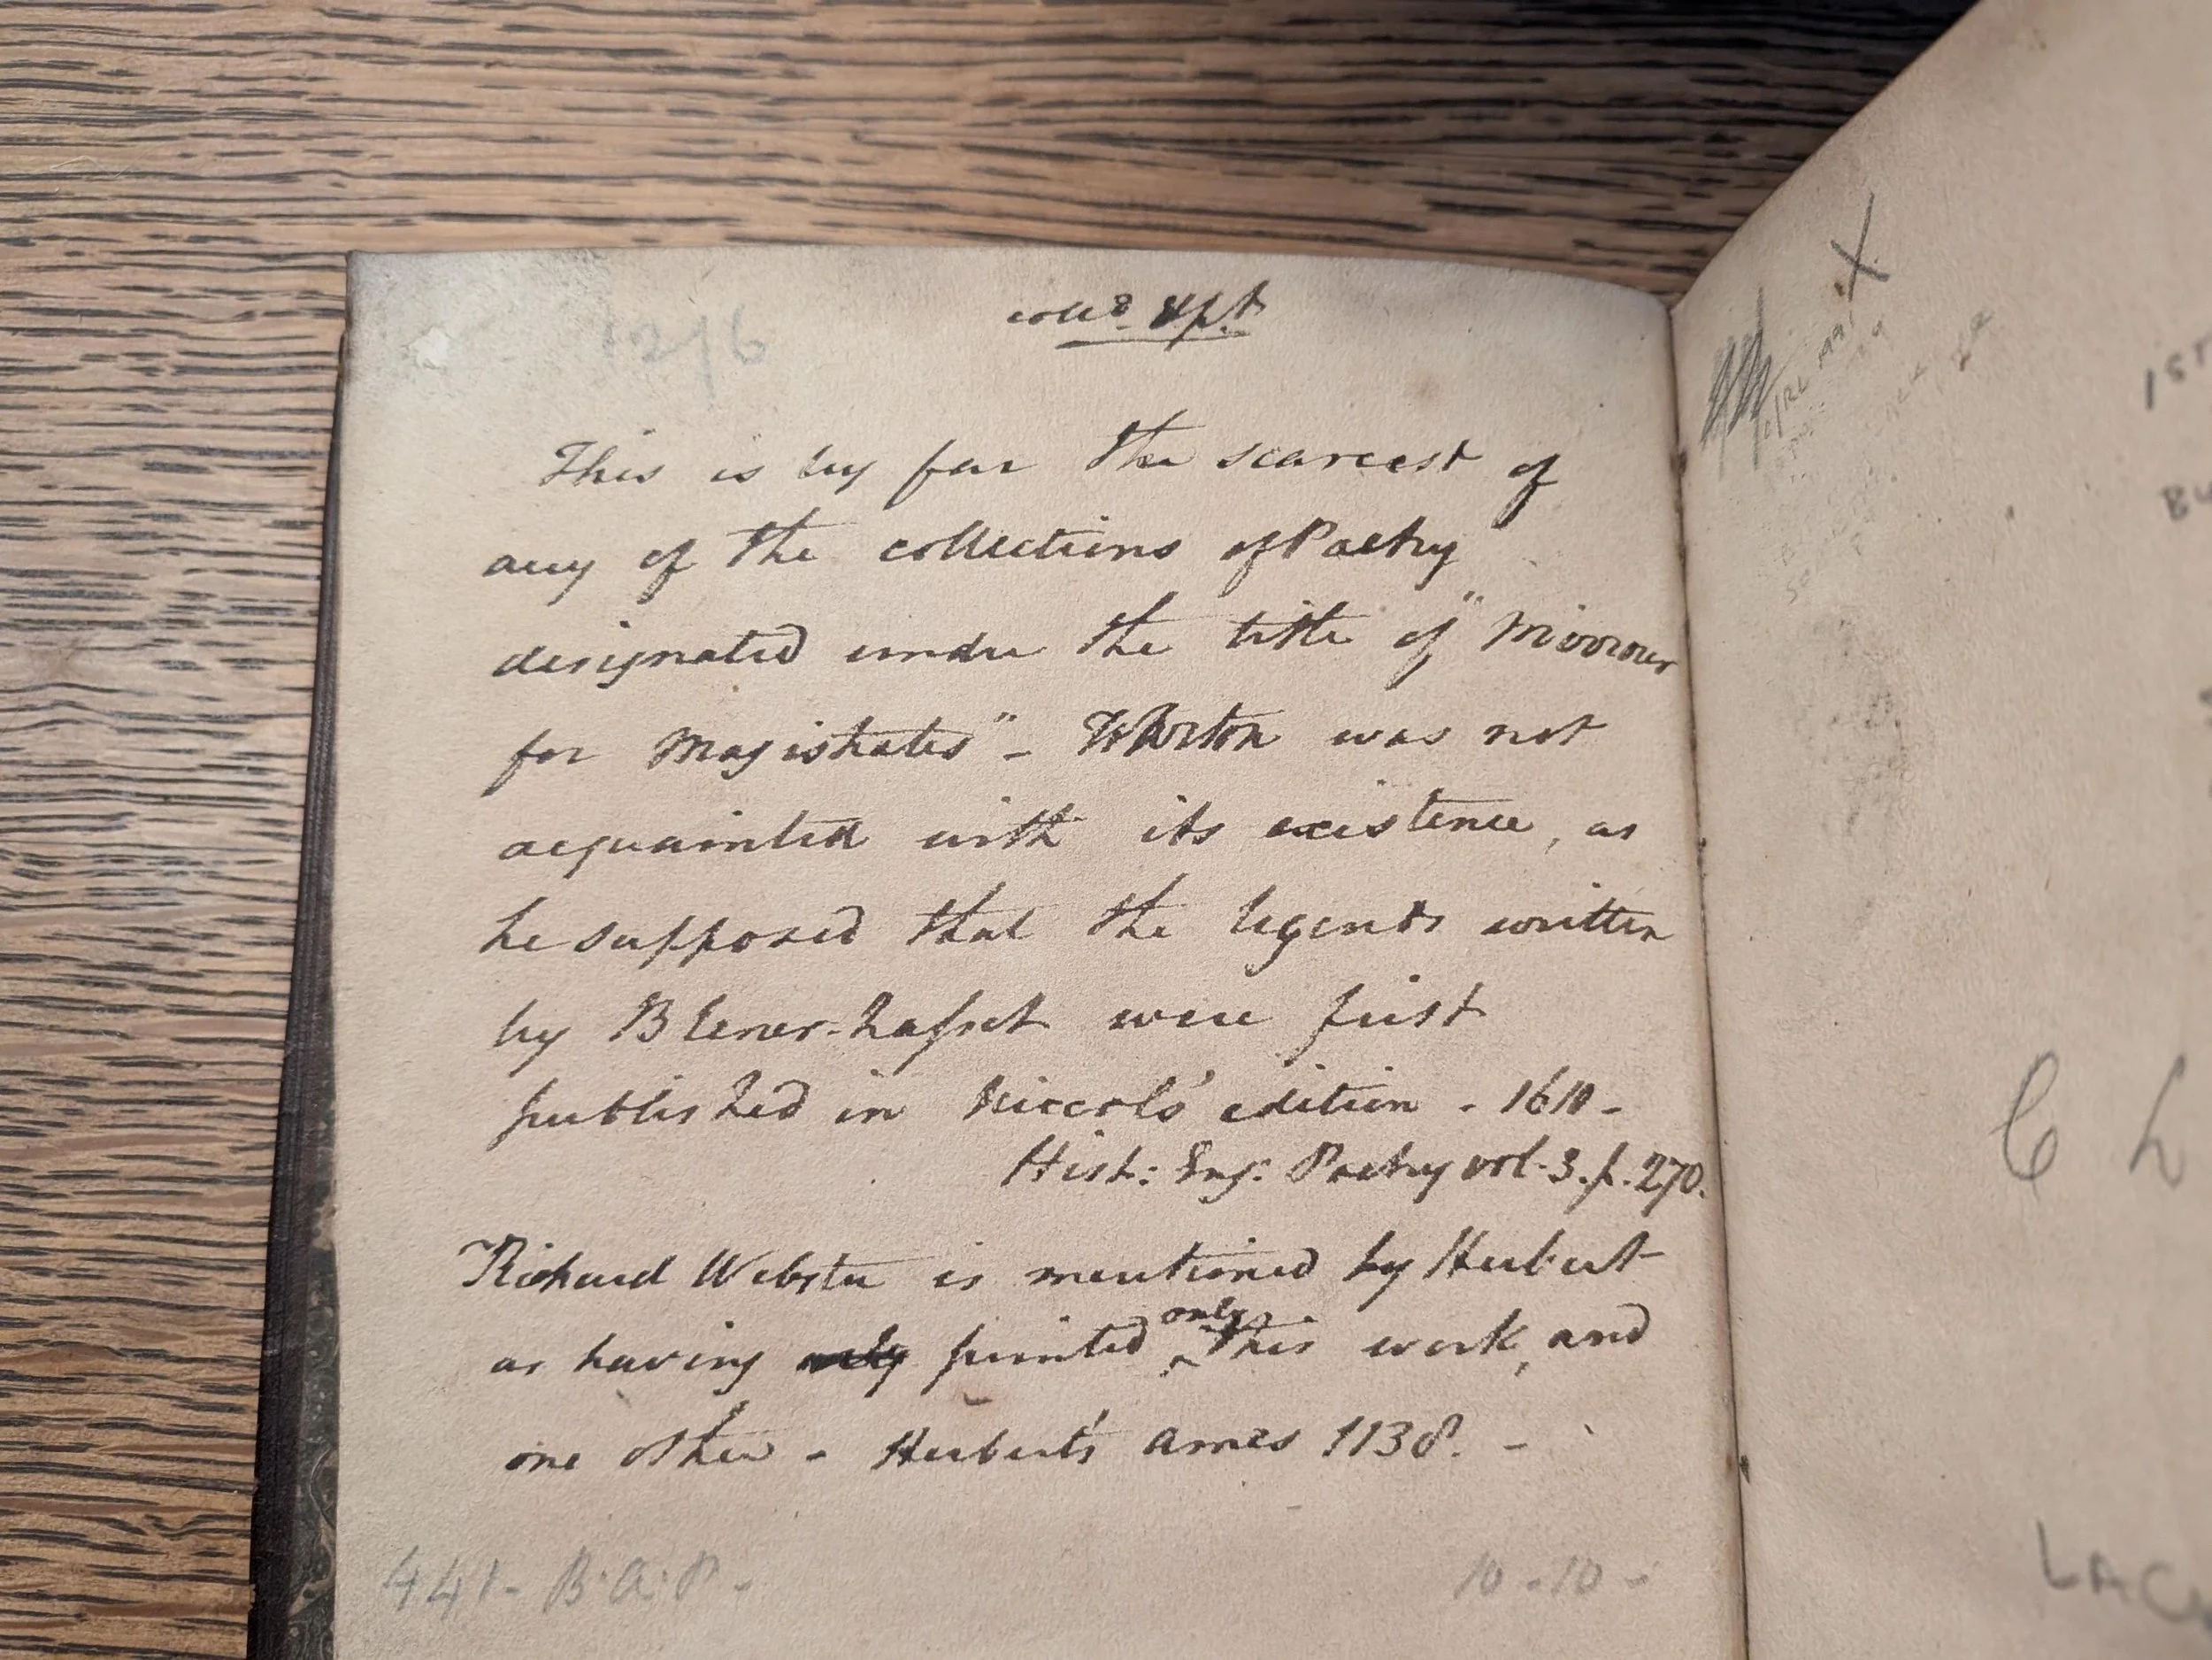 12/6
coll.d &pf.t
This is by far the scarcest of
any of the collections of Poetry
designated under the title of "Mirrour
for Magistrates" - Wharton was not
acquainted with its existence, as
he supposed that the legends written
by Blener-hasset were first
published in Niccols' edition - 1610 -
Hist: Eng: Poetry vol. 3. p. 270.
Richard Webster is mentioned by Herbert
as having only printed only this work, and
one other - Herbert's Ames 1138. -
441 - B.A.P. -
10 - 10 -
X
1ST
BU
C L
LAC